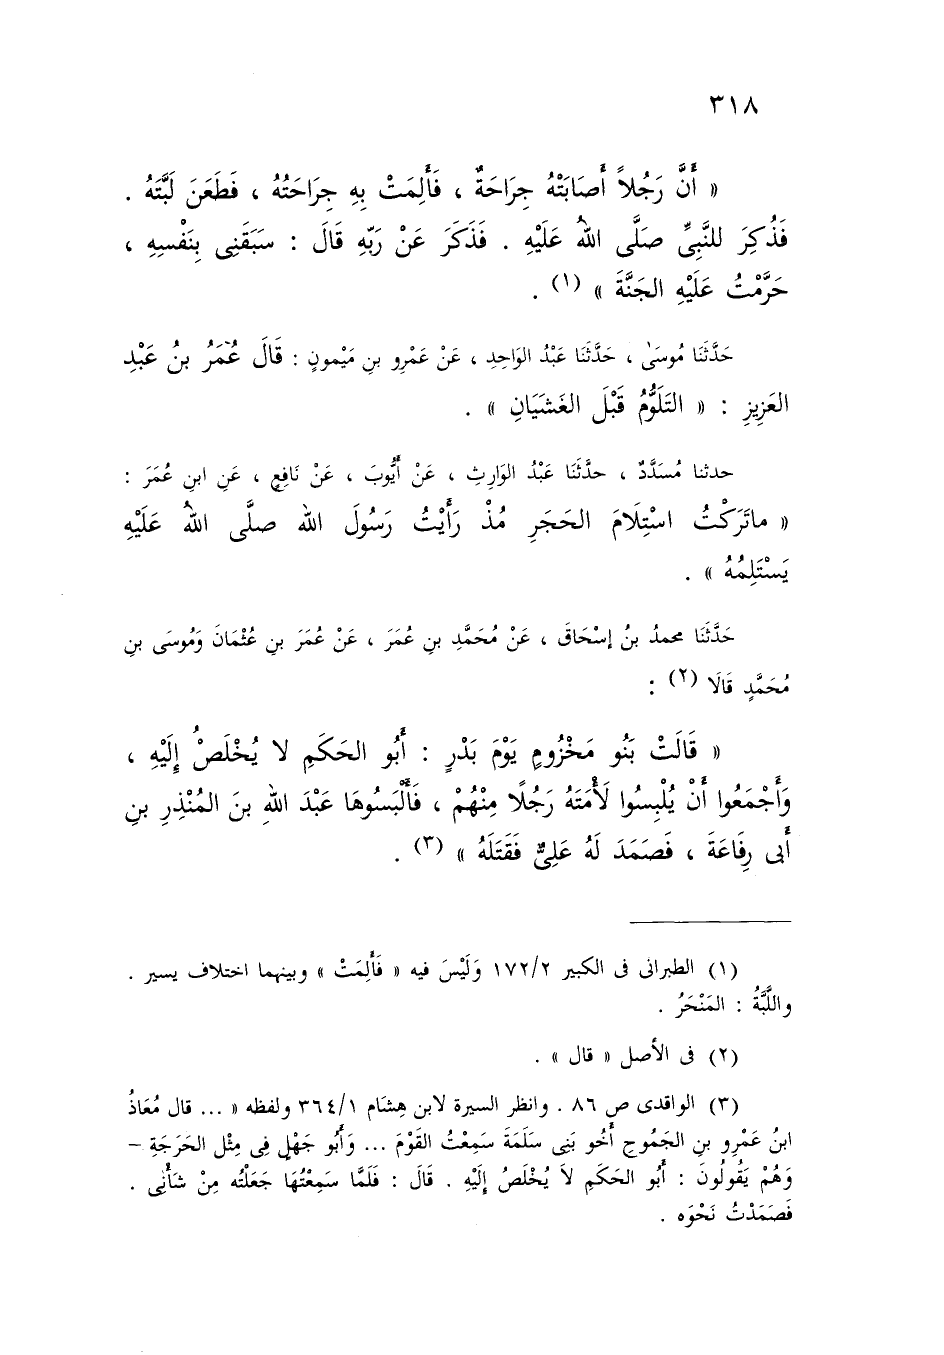 ٣١٨
« أَنَّ رَجُلاً أَصَابَتْهُ جِرَاحَةٌ ، فَأَلِمَتْ بِهِ جِرَاحَتُهُ ، فَطَعَنَ لَبَّتَهُ .
فَذُكِرَ للنَّبِىِّ صَلَّى اللهُ عَلَيْهِ . فَذَكَرَ عَنْ رَبِّهِ قَالَ : سَبَقَنِى بِنَفْسِهِ ،
حَرَّمْتُ عَلَيْهِ الجَنَّةَ » (١) .
حَدَّثَنَا مُوسَىٰ ، حَدَّثَنَا عَبْدُ الوَاحِدِ ، عَنْ عَمْرِو بنِ مَيْمونٍ : قَالَ عُمَرُ بنُ عَبْدِ
العَزِيزِ : « التَلَوُّمُ قَبْلَ الغَشَيَانِ » .
حدثنا مُسَدَّدٌ ، حدَّثَنَا عَبْدُ الوَارِثِ ، عَنْ أَيُّوبَ ، عَنْ نَافِعٍ ، عَنِ ابنِ عُمَرَ :
« ماتَرَكْتُ اسْتِلَامَ الحَجَرِ مُذْ رَأَيْتُ رَسُولَ الله صلَّى اللهُ عَلَيْهِ
يَسْتَلِمُهُ » .
حَدَّثَنَا محمدُ بنُ إسْحَاقَ ، عَنْ مُحَمَّدِ بنِ عُمَرَ ، عَنْ عُمَرَ بنِ عُثْمَانَ وَمُوسَى بنِ
مُحَمَّدٍ قَالَا (٢) :
« قَالَتْ بَنُو مَخْزُومٍ يَوْمَ بَدْرٍ : أَبُو الحَكَمِ لا يُخْلَصُ إِلَيْهِ ،
وَأَجْمَعُوا أَنْ يُلْبِسُوا لَأْمَتَهُ رَجُلًا مِنْهُمْ ، فَأَلْبَسُوهَا عَبْدَ اللهِ بنَ المُنْذِرِ بنِ
أَبى رِفَاعَةَ ، فَصَمَدَ لَهُ عَلِىٌّ فَقَتَلَهُ » (٣) .
(١) الطبرانى فى الكبير ١٧٢/٢ وَلَيْسَ فيه « فَأَلِمَتْ » وبينهما اختلاف يسير .
واللَّبَّةُ : المَنْحَرُ .
(٢) فى الأصل « قال » .
(٣) الواقدى ص ٨٦ . وانظر السيرة لابن هِشَام ٣٦٤/١ ولفظه « ... قال مُعَاذُ
ابنُ عَمْرِو بنِ الجَمُوحِ أَخُو بَنِى سَلَمَةَ سَمِعْتُ القَوْمَ ... وَأَبُو جَهْلٍ فِى مِثْل الحَرَجَةِ –
وَهُمْ يَقُولُونَ : أَبُو الحَكَمِ لاَ يُخْلَصُ إِلَيْهِ . قَالَ : فَلَمَّا سَمِعْتُهَا جَعَلْتُه مِنْ شَأْنِى .
فَصَمَدْتُ نَحْوَه .